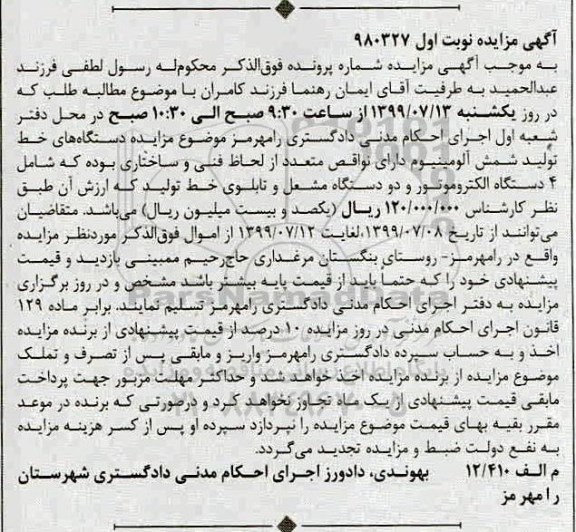 آگهی مزایده نوبت اول ۹۸۰۳۲۷
به موجب آگهی مزایده شماره پرونده فوق‌الذکر محکوم‌له رسول لطفی فرزند
عبدالحمید به طرفیت آقای ایمان رهنما فرزند کامران با موضوع مطالبه طلب که
در روز یکشنبه ۱۳۹۹/۰۷/۱۳ از ساعت ۹:۳۰ صبح الی ۱۰:۳۰ صبح در محل دفتر
شعبه اول اجرای احکام مدنی دادگستری رامهرمز موضوع مزایده دستگاه‌های خط
تولید شمش آلومینیوم دارای نواقص متعدد از لحاظ فنی و ساختاری بوده که شامل
۴ دستگاه الکتروموتور و دو دستگاه مشعل و تابلوی خط تولید که ارزش آن طبق
نظر کارشناس ۱۲۰/۰۰۰/۰۰۰ ریال (یکصد و بیست میلیون ریال) می‌باشد. متقاضیان
می‌توانند از تاریخ ۱۳۹۹/۰۷/۰۸،لغایت ۱۳۹۹/۰۷/۱۲ از اموال فوق‌الذکر موردنظر مزایده
واقع در رامهرمز- روستای بنگستان مرغداری حاج‌رحیم ممبینی بازدید و قیمت
پیشنهادی خود را که حتماً باید از قیمت پایه بیشتر باشد مشخص و در روز برگزاری
مزایده به دفتر اجرای احکام مدنی دادگستری رامهرمز تسلیم نمایند. برابر ماده ۱۲۹
قانون اجرای احکام مدنی در روز مزایده ۱۰ درصد از قیمت پیشنهادی از برنده مزایده
اخذ و به حساب سپرده دادگستری رامهرمز واریز و مابقی پس از تصرف و تملک
موضوع مزایده از برنده مزایده اخذ خواهد شد و حداکثر مهلت مزبور جهت پرداخت
مابقی قیمت پیشنهادی از یک ماه تجاوز نخواهد کرد و درصورتی که برنده در موعد
مقرر بقیه بهای قیمت موضوع مزایده را نپردازد سپرده او پس از کسر هزینه مزایده
به نفع دولت ضبط و مزایده تجدید می‌گردد.
م الف ۱۲/۴۱۰ بهوندی، دادورز اجرای احکام مدنی دادگستری شهرستان
رامهرمز
ParsNamadData